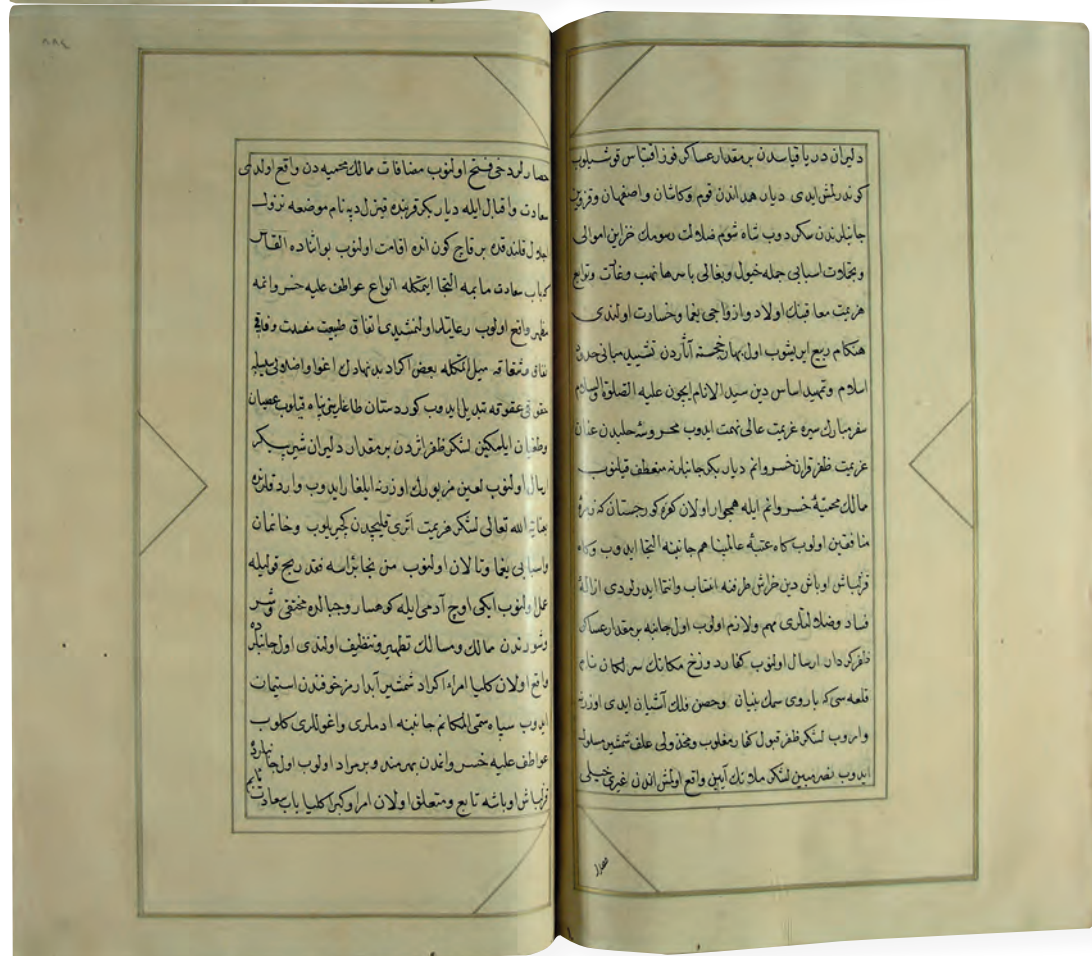 دلیران دریا قیاسدن بر مقدار عساکر فوز اقتباس قوشیلوب
کوندرلمش ایدی دیار همداندن قوم وکاشان واصفهان وقزوین
جانبلرندن سکردوب شاه شوم ضلالت رسومك خزاین اموالی
وتجملات اسبابی جمله خیول وبغالی باسرها نهب وغارت وتوابع
هزیمت معاقبنك اولاد وازواجی یغما وخسارت اولندی
هنکام ربیع ایریشوب اول بهار خجسته آثاردن تشیید مبانی حدود
اسلام وتمهید اساس دین سید الانام ایچون علیه الصلوة والسلام
سفر مبارك سیره عزیمت عالی نهمت ایدوب محروسهٔ حلبدن عنان
عزیمت ظفر قران خسروانه دیار بکر جانبلرینه منعطف قیلنوب
ممالك محمیهٔ خسروانه ایله همجوار اولان کفرهٔ کورجستان که زمرهٔ
منافقین اولوب کاه عتبهٔ عالمپناهم جانبنه التجا ایدوب وکاه
قزلباش اوباش دین خراش طرفنه انتساب وانتما ایدرلردی ازالهٔ
فساد وضلالتلری مهم ولازم اولوب اول جانبه بر مقدار عساکر
ظفرکردار ارسال اولنوب کفار دوزخ مکانك نام
قلعه سی که باروی سمك بنیان وحصن فلك آشیان ایدی اوزرینه
واروب لشکر ظفر قبول کفار مغلوب ومخذولی علف شمشیر مسلول
ایدوب نصر مبین لشکر ملائك آیین واقع اولمش اندن غیری خیلی
حصارلر دخی فتح اولنوب مضافات ممالك محمیه دن واقع اولدی
سعادت واقبال ایله دیار بکر قربنده قیزل دپه نام موضعه نزول
اجلال قلندقده بر قاچ کون انده اقامت اولنوب بو اثناده القاس
باب سعادت مابمه التجا ایتمکله انواع عواطف علیه خسروانمه
مظهر واقع اولوب رعایتلر اولنمشیدی اتفاق طبیعت مفسدت
نفاق وشقاقه میل اتمکله بعض اکراد بدنهادك اغوا واضلالی سببیله
حقوقی عقوقه تبدیل ایدوب کوردستان طاغلرینی پناه قیلوب عصیان
وطغیان ایلمکین لشکر ظفر اثردن بر مقدار دلیران شیر پیکر
ارسال اولنوب لعین مزبورك اوزرینه ایلغار ایدوب واردقلرنده
بعنایت الله تعالی لشکر هزیمت اثری قلیچدن کچریلوب وخانمان
واسبابی یغما وتالان اولنوب من نجا براسه فقد ربح قولیله
عمل اولنوب ایکی اوچ آدمی ایله کوهسار وجبالده مختفی وشر
وشورندن ممالك ومسالك تطهیر وتنظیف اولندی اول جانبلرده
واقع اولان کلیا امراء اکراد شمشیر آبدارمز خوفندن استیمان
ایدوب سپاه جانبنه ادملری واغوللری کلوب
عواطف علیه خسروانمدن بهره مند وبر مراد اولوب اول جانبلرده
قزلباش اوباشه تابع ومتعلق اولان امرا وکبرا کلیا باب سعادت